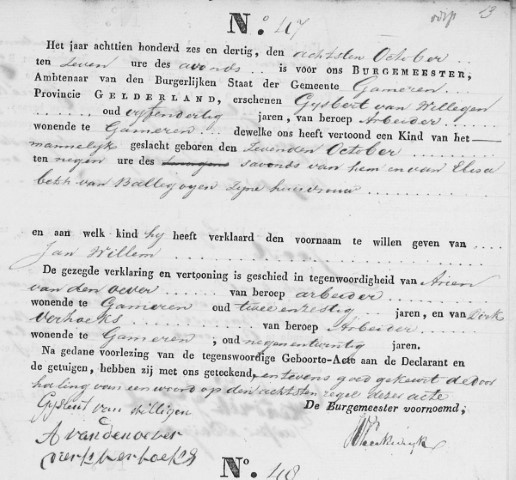 13
N.o 47
Het jaar achttien honderd zes en dertig, den achtsten October
ten zeven ure des avonds is vóór ons BURGEMEESTER,
Ambtenaar van den Burgerlijken Staat der Gemeente Gameren
Provincie GELDERLAND, erschenen Gysbert van Willegen
oud vyfendertig jaren, van beroep Arbeider
wonende te Gameren dewelke ons heeft vertoond een Kind van het
mannelyk geslacht geboren den zevenden October
ten negen ure des savonds van hem en van Elisa
beth van Ballegoyen zyne huisvrouw
en aan welk kind hy heeft verklaard den voornaam te willen geven van
Jan Willem
De gezegde verklaring en vertooning is geschied in tegenwoordigheid van Arien
van den oever van beroep arbeider
wonende te Gameren oud twee en zestig jaren, en van Dirk
Verhoeks van beroep Arbeider
wonende te Gameren, oud negenentwintig jaren.
Na gedane voorlezing van de tegenswoordige Geboorte-Acte aan den Declarant en
de getuigen, hebben zij met ons geteekend, en tevens goed gekeurd de door
haling van een woord op den achtsten regel dezer acte
Gysbert van willigen
De Burgemeester voornoemd,
A van den oever
Dierk verhoeks
N.o 48